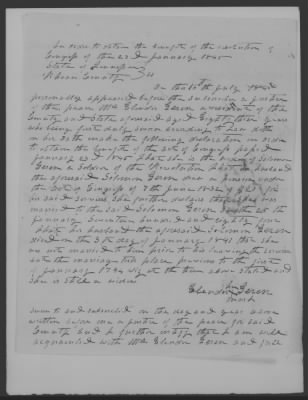 In order to obtain the benefit of the
Congress of the 23d January 1845
State of Tennessee
County SS
On this 10th July 1845
personally appeared before the subscriber a Justice
of the peace Mrs Eleanor Geron a resident of the
County and State aforesaid aged Eighty three years
who being first duly sworn according to Law doth
on her oath make the following declaration in order
to obtain the benefit of the act of Congress passed
January 23d 1845 that she is the widow of Solomon
Geron a Soldier of the Revolution that her husband
the aforesaid Solomon Geron was a pensioner under
the Act of Congress of 7th June 1832
in said service She further declares that she was
married to the said Solomon Geron
January Seventeen hundred and eighty
that her husband the aforesaid Solomon Geron
died on the 3th day of January 1841 that she
was not married to him prior to his leaving the service
but the marriage took place previous to the first
of January 1794 viz at the time above stated and
she is still a widow
Eleanor Geron
her
mark
Sworn to and subscribed on the day and year above
written before me a Justice of the peace for said
County and I further certify that I am well
acquainted with Mrs Eleanor Geron and